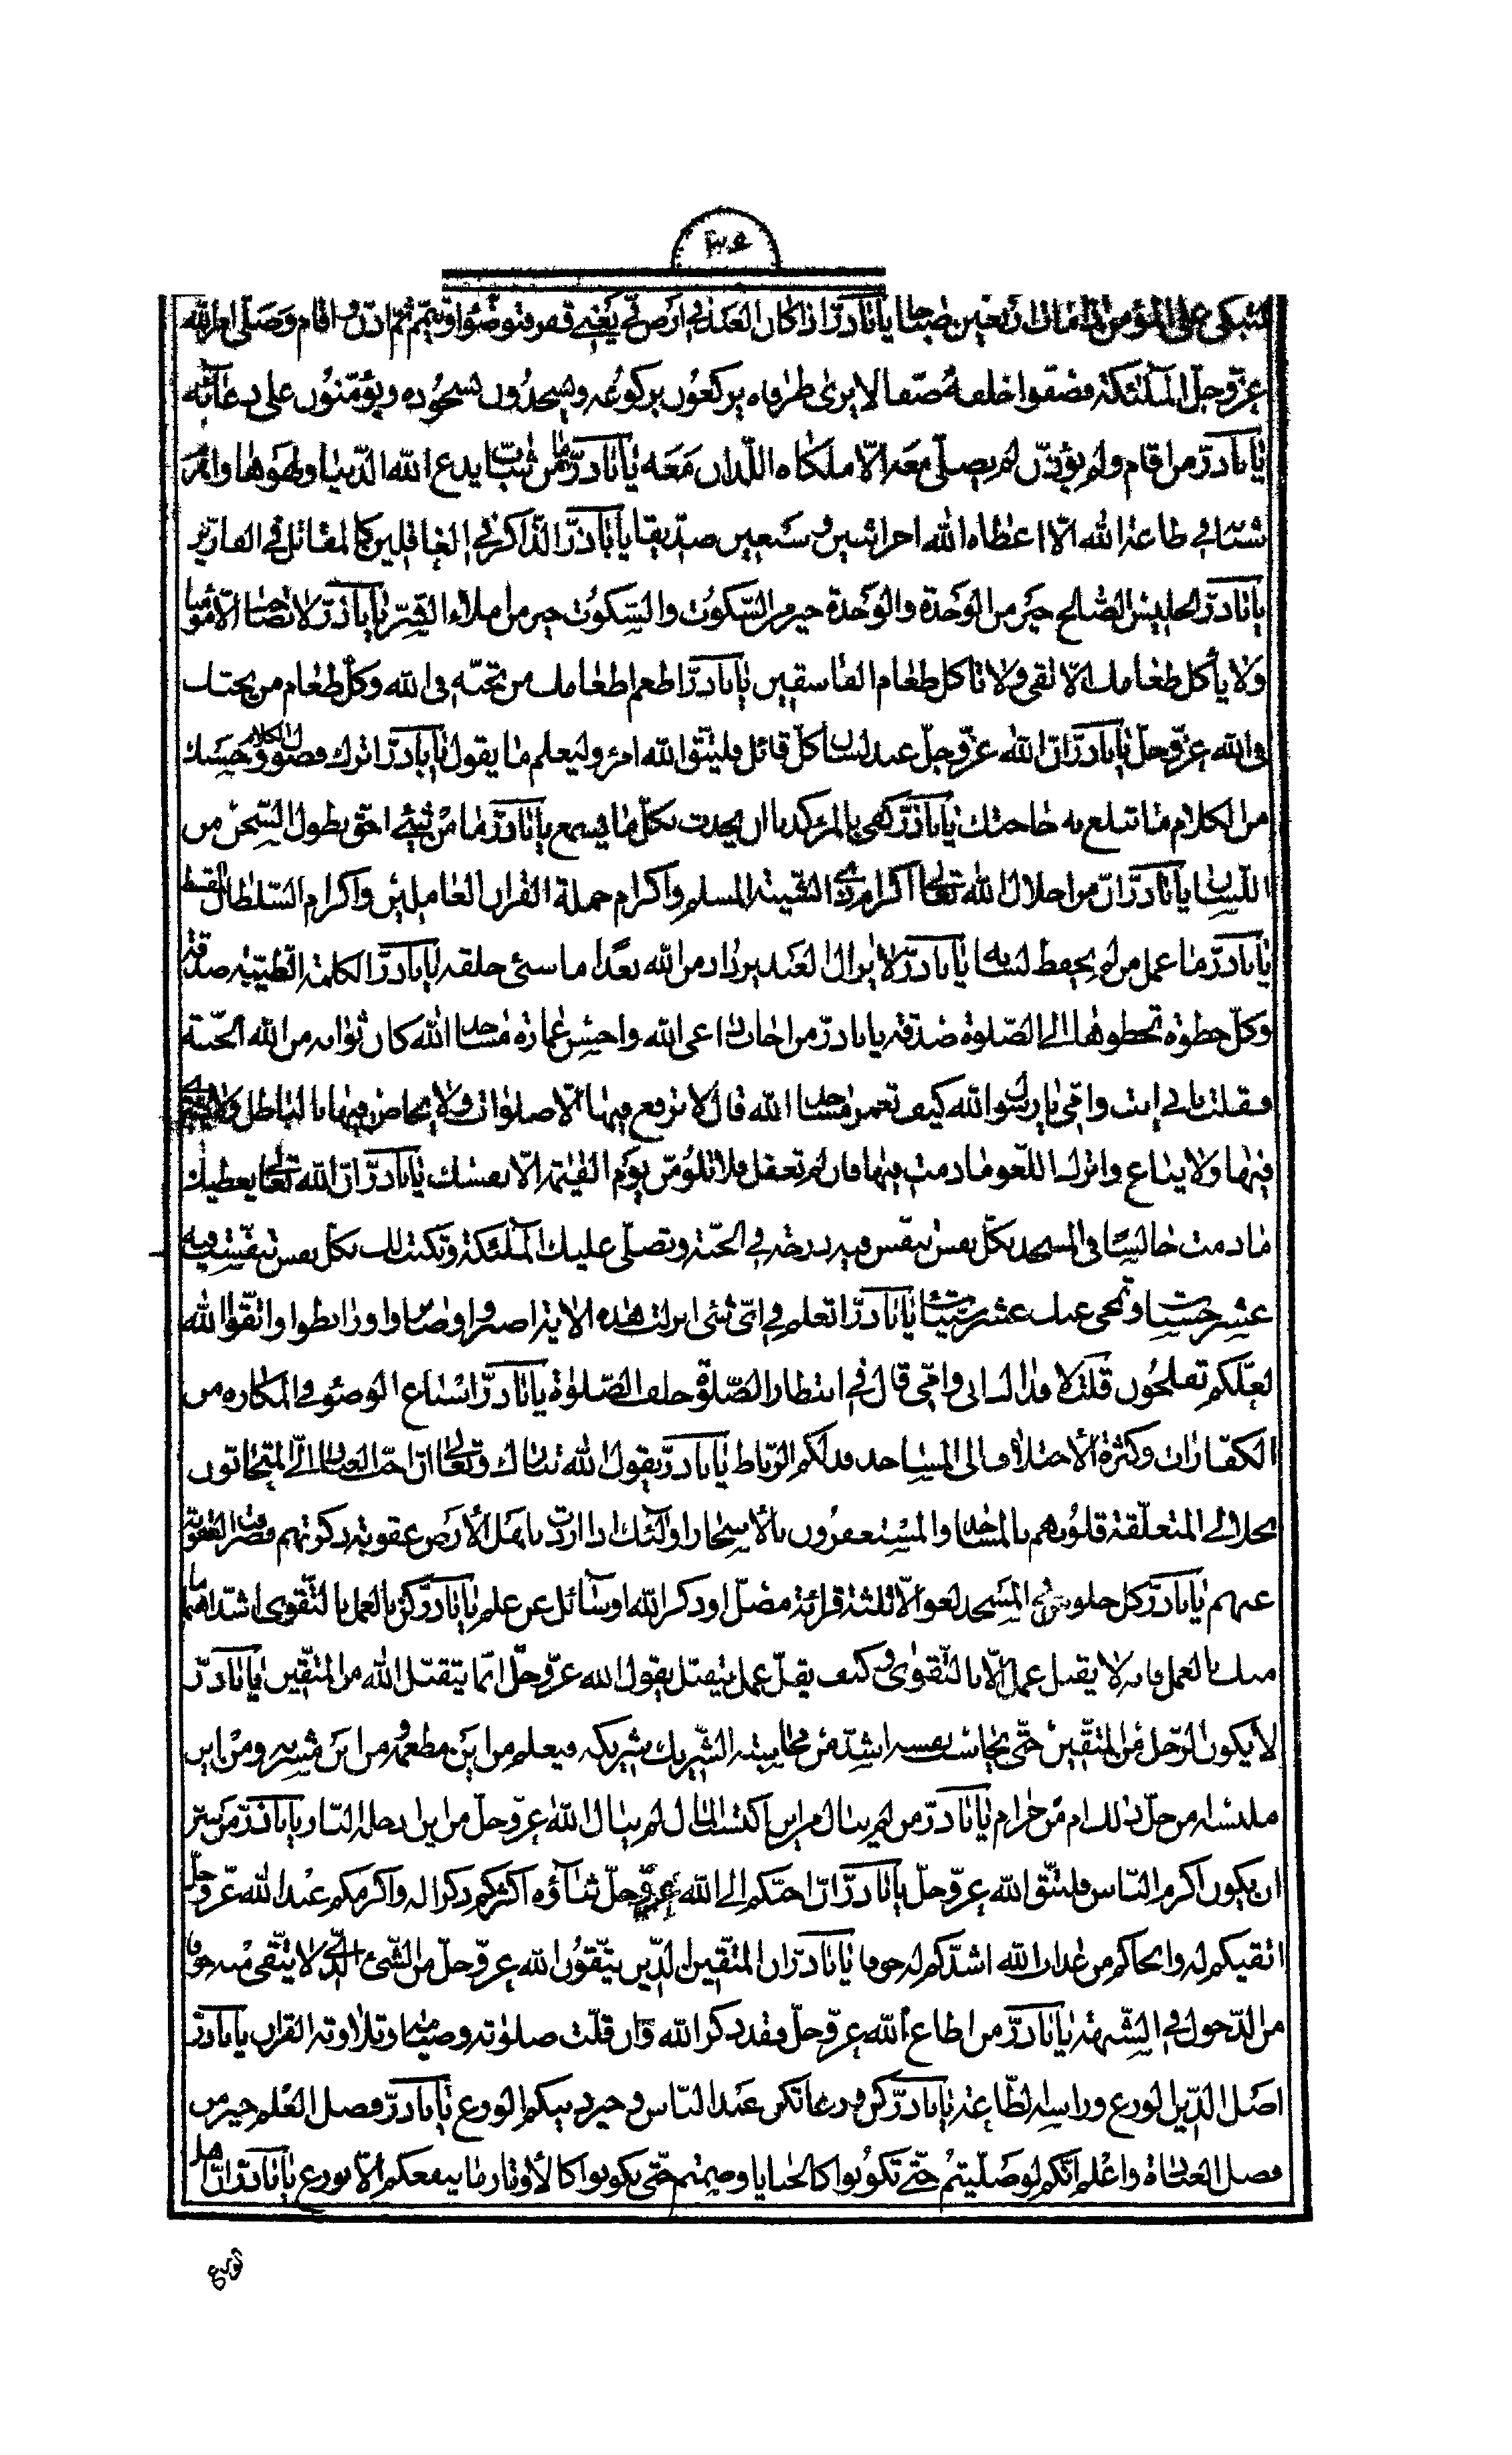 لتبكى على المؤمن اذا مات اربعين صباحا يا اباذرّ اذا كان العبد فى ارض قىّ يعنى قفر فتوضّؤ او تيمّم ثمّ اذّن و اقام و صلّى امر الله
عزّ و جلّ الملئكة فصفّوا خلفه صفّا لا يرى طرفاه يركعون بركوعه و يسجدون بسجوده و يؤمّنون على دعائه
يا اباذرّ من اقام و لم يؤذّن لم يصلّ معه الّا ملكاه اللّذان معه يا اباذرّ ما من شابّ يدع لله الدّنيا و لهوها و اهرم
شبابه فى طاعة الله الّا اعطاه الله اجر اثنين و سبعين صدّيقا يا اباذرّ الذّاكر فى الغافلين كالمقاتل فى الفارّين
يا اباذرّ الجليس الصّالح خير من الوحدة و الوحدة خير من السّكوت و السّكوت خير من املاء الشّرّ يا اباذرّ لا تصاحب الّا مؤمنا
و لا يأكل طعامك الّا تقى و لا تاكل طعام الفاسقين يا اباذرّ اطعم طعامك من تحبّه فى الله و كل طعام من يحبّك
فى الله عزّ و جلّ يا اباذرّ انّ الله عزّ و جلّ عند لسان كلّ قائل فليتّق الله امرؤ و ليعلم ما يقول يا اباذرّ اترك فضول الكلام و حسبك
من الكلام ما تبلغ به حاجتك يا اباذرّ كفى بالمرء كذبا ان يحدث بكلّ ما يسمع يا اباذرّ ما من شىء احقّ بطول السّجن من
اللّسان يا اباذرّ انّ من اجلال الله تعالى اكرام ذى الشّيبة المسلم و اكرام حملة القران العاملين و اكرام السّلطان المقسط
يا اباذرّ ما عمل من لم يحفظ لسانه يا اباذرّ لا يزال العبد يزداد من الله بعدا ما سئ خلقه يا اباذرّ الكلمة الطّيّبة صدقة
و كلّ خطوة تخطوها الى الصّلوة صدقة يا اباذرّ من اجاب داعى الله و احسن عمارة مساجد الله كان ثوابه من الله الجنّة
فقلت بابى انت و امّى يا رسول الله كيف تعمر مساجد الله قال لا ترفع فيها الاصلوات و لا يخاض فيها بالباطل و لا يشترى
فيها و لا يباع و اترك اللّغو ما دمت فيها فان لم تفعل فلا تلومنّ يوم القيمة الّا نفسك يا اباذرّ انّ الله تعالى يعطيك
ما دمت جالسا فى المسجد بكلّ نفس تنفّس فيه درجة فى الجنّة و تصلّى عليك الملئكة و تكتب لك بكلّ نفس تنفّست فيه
عشر حسنات و تمحى عنك عشر سيّئات يا اباذرّ اتعلم فى اىّ شئ انزلت هذه الاية اصبروا و صابروا و رابطوا و اتّقوا الله
لعلّكم تفلحون قلت لا فداك ابى و امّى قال فى انتظار الصّلوة خلف الصّلوة يا اباذرّ اسباغ الوضوء فى المكاره من
الكفّارات و كثرة الاختلاف الى المساجد فذلكم الرّباط يا اباذرّ يقول الله تبارك و تعالى انّ احبّ العباد الىّ المتحابّون
بجلالى المتعلّقة قلوبهم بالمساجد و المستغفرون بالأسحار اولئك اذا اردت باهل الأرض عقوبة ذكرتهم فصرفت العقوبة
عنهم يا اباذرّ كل جلوس فى المسجد لغو الّا ثلثة قرائة مصلّ او ذكر الله او سائل عن علم يا اباذرّ كن بالعمل بالتّقوى اشدّ اهتماما
منك بالعمل فانه لا يقبل عمل الّا بالتّقوى و كيف يقلّ عمل يتقبّل يقول الله عزّ و جلّ انّما يتقبّل الله من المتّقين يا اباذرّ
لا يكون الرّجل من المتّقين حتّى يحاسب نفسه اشدّ من محاسبة الشّريك شريكه فيعلم من اين مطعمه و من اين مشربه و من اين
ملبسه امن حلّ ذلك ام من حرام يا اباذرّ من لم يبال من اين اكتسب المال لم يبال الله عزّ و جلّ من اين ادخله النّار يا اباذرّ من سرّه
ان يكون اكرم النّاس فليتّق الله عزّ و جلّ يا اباذرّ انّ احبّكم الى الله عزّ و جلّ ثناؤه اكثركم ذكرا له و اكرمكم عند الله عزّ و جلّ
اتقيكم له و انجاكم من عذاب الله اشدّكم له خوفا يا اباذرّ ان المتّقين الّذين يتّقون الله عزّ و جلّ من الشّئ الّذى لا يتّقى منه خوفا
من الدّخول فى الشّبهة يا اباذرّ من اطاع الله عزّ و جلّ فقد ذكر الله و ان قلّت صلوته و صيامه و تلاوته القران يا اباذرّ
اصل الدّين الورع و راسه الطّاعة يا اباذرّ كن ورعا تكن عبد النّاس و خير دينكم الورع يا اباذرّ فضل العلم خير من
فضل العبادة و اعلم انّكم لو صلّيتم حتّى تكونوا كالحنايا و صمتم حتّى تكونوا كالأوتار ما ينفعكم الّا بورع يا اباذرّ انّ اهل
الورع